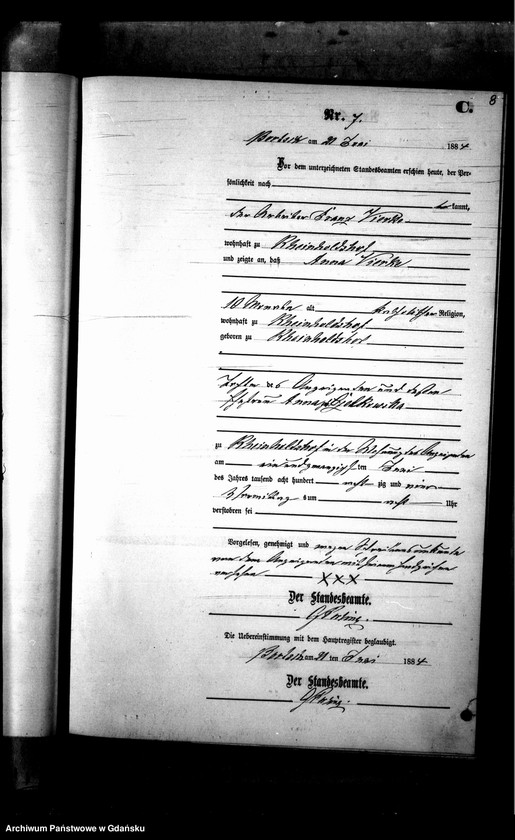 8
C.
Nr. 7.
am 21 Juni 1884
Vor dem unterzeichneten Standesbeamten erschien heute, der Per-
sönlichkeit nach
kannt,
der Arbeiter Franz
wohnhaft zu Rheinholdshof
und zeigte an, daß Anna
10 Monate alt katholischer Religion,
wohnhaft zu Rheinholdshof
geboren zu Rheinholdshof
Tochter des Anzeigenden und dessen
Ehefrau Anna
zu Rheinholdshof in der Wohnung des Anzeigenden
am ein und zwanzigsten ten Juni
des Jahres tausend acht hundert acht zig und vier
Vormittags um acht Uhr
verstorben sei
Vorgelesen, genehmigt und wegen Schreibensunkunde
von dem Anzeigenden mit seinem Handzeichen
versehen XXX
Der Standesbeamte.
Die Uebereinstimmung mit dem Hauptregister beglaubigt.
am 21 ten Juni 1884
Der Standesbeamte.
Archiwum Państwowe w Gdańsku